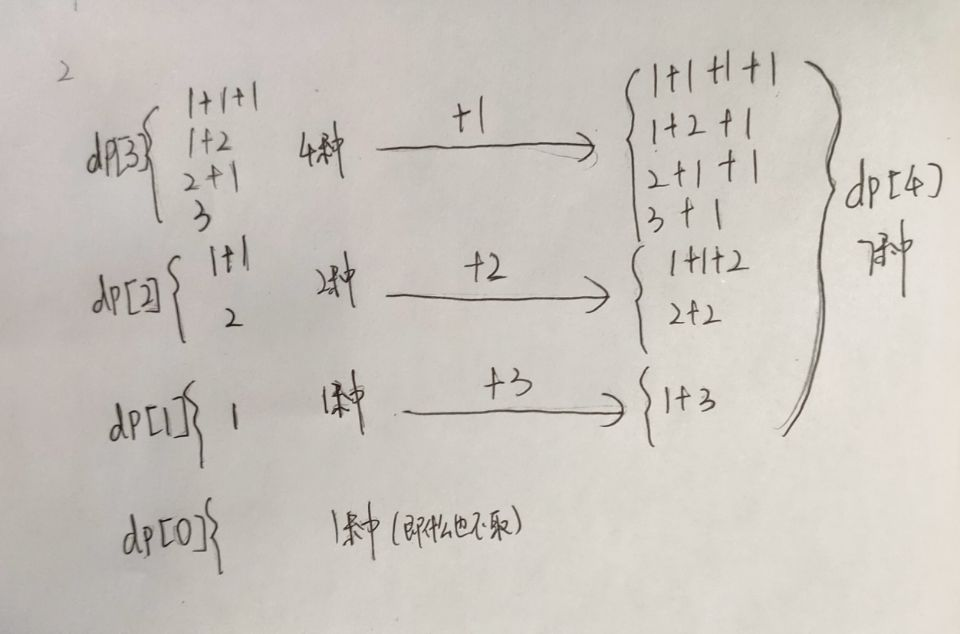 2
dp[3]{ 1+1+1
1+2
2+1
3
4种
+1
1+1+1+1
1+2+1
2+1+1
3+1
dp[2]{ 1+1
2
2种
+2
1+1+2
2+2
dp[1]{ 1
1种
+3
1+3
dp[4]
7种
dp[0]{
1种(即什么也不取)